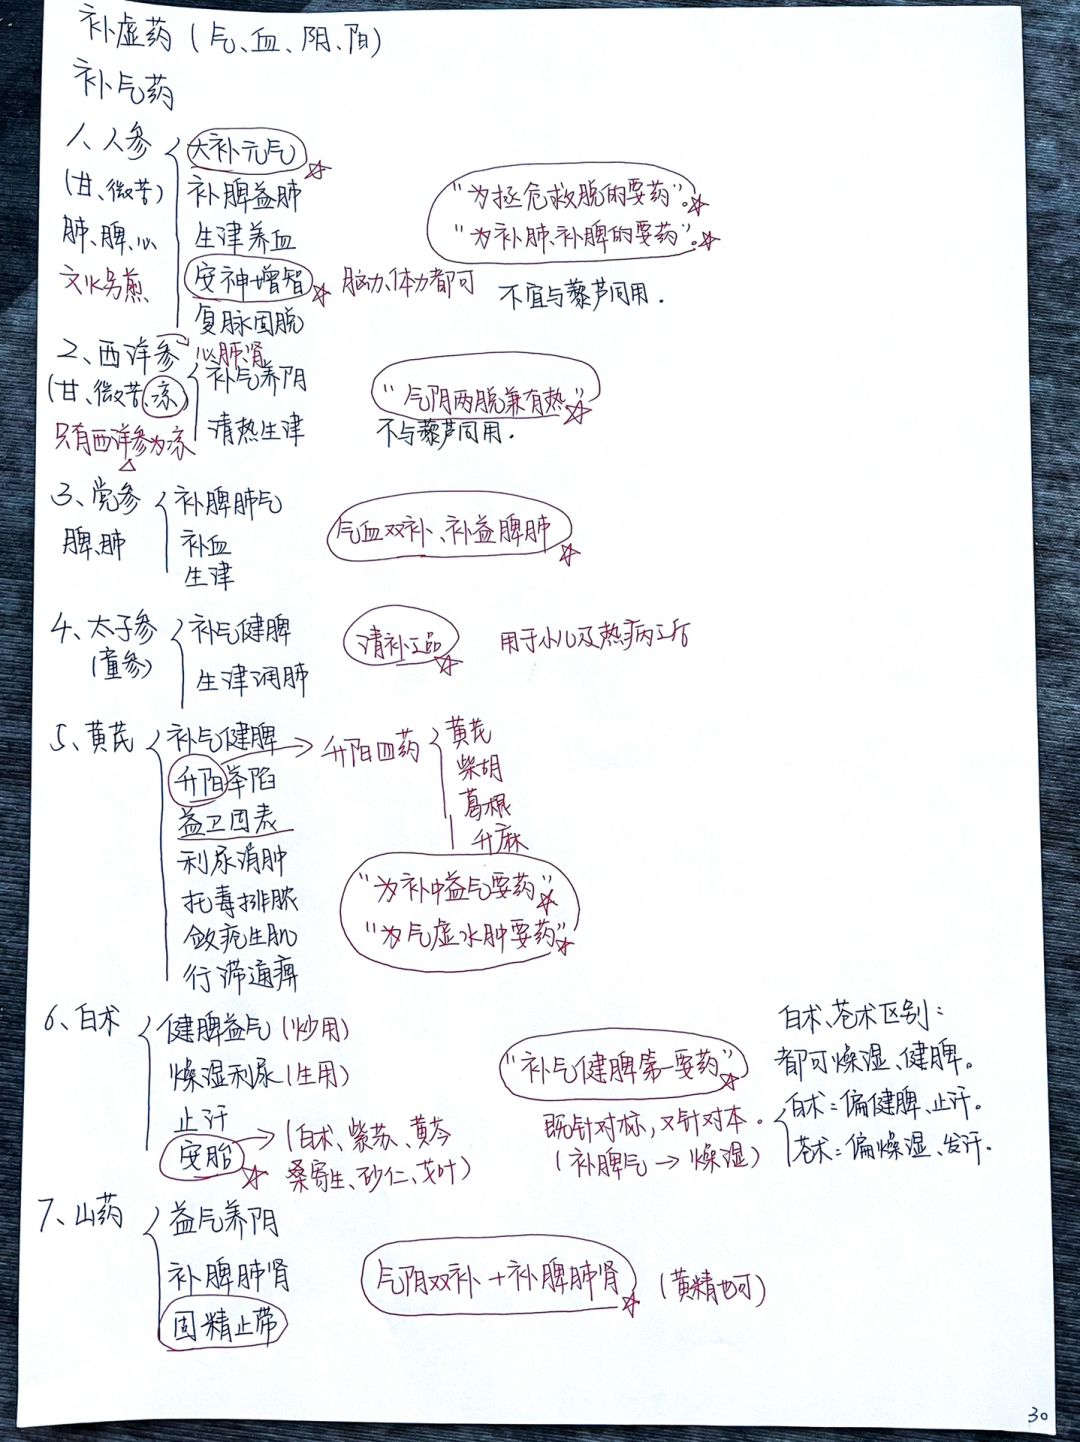 补虚药(气、血、阴、阳)
补气药
1、人参
(甘、微苦)
肺、脾、心
文火另煎
大补元气
补脾益肺
生津养血
安神增智
复脉固脱
脑力、体力都可
"为拯危救脱的要药"。
"为补肺、补脾的要药"。
不宜与藜芦同用.
2、西洋参
心肺肾
(甘、微苦、凉)
只有西洋参为凉
补气养阴
清热生津
"气阴两脱兼有热"
不与藜芦同用.
3、党参
脾、肺
补脾肺气
补血
生津
气血双补、补益脾肺
4、太子参
(童参)
补气健脾
生津润肺
清补之品
用于小儿及热病之后
5、黄芪
补气健脾
升阳举陷
益卫固表
利尿消肿
托毒排脓
敛疮生肌
行滞通痹
升阳四药
黄芪
柴胡
葛根
升麻
"为补中益气要药"
"为气虚水肿要药"
6、白术
健脾益气(炒用)
燥湿利尿(生用)
止汗
安胎
(白术、紫苏、黄芩
桑寄生、砂仁、艾叶)
"补气健脾第一要药"
既针对标,又针对本.
(补脾气→燥湿)
白术、苍术区别:
都可燥湿、健脾。
白术:偏健脾、止汗。
苍术:偏燥湿、发汗.
7、山药
益气养阴
补脾肺肾
固精止带
气阴双补+补脾肺肾
(黄精也可)
30